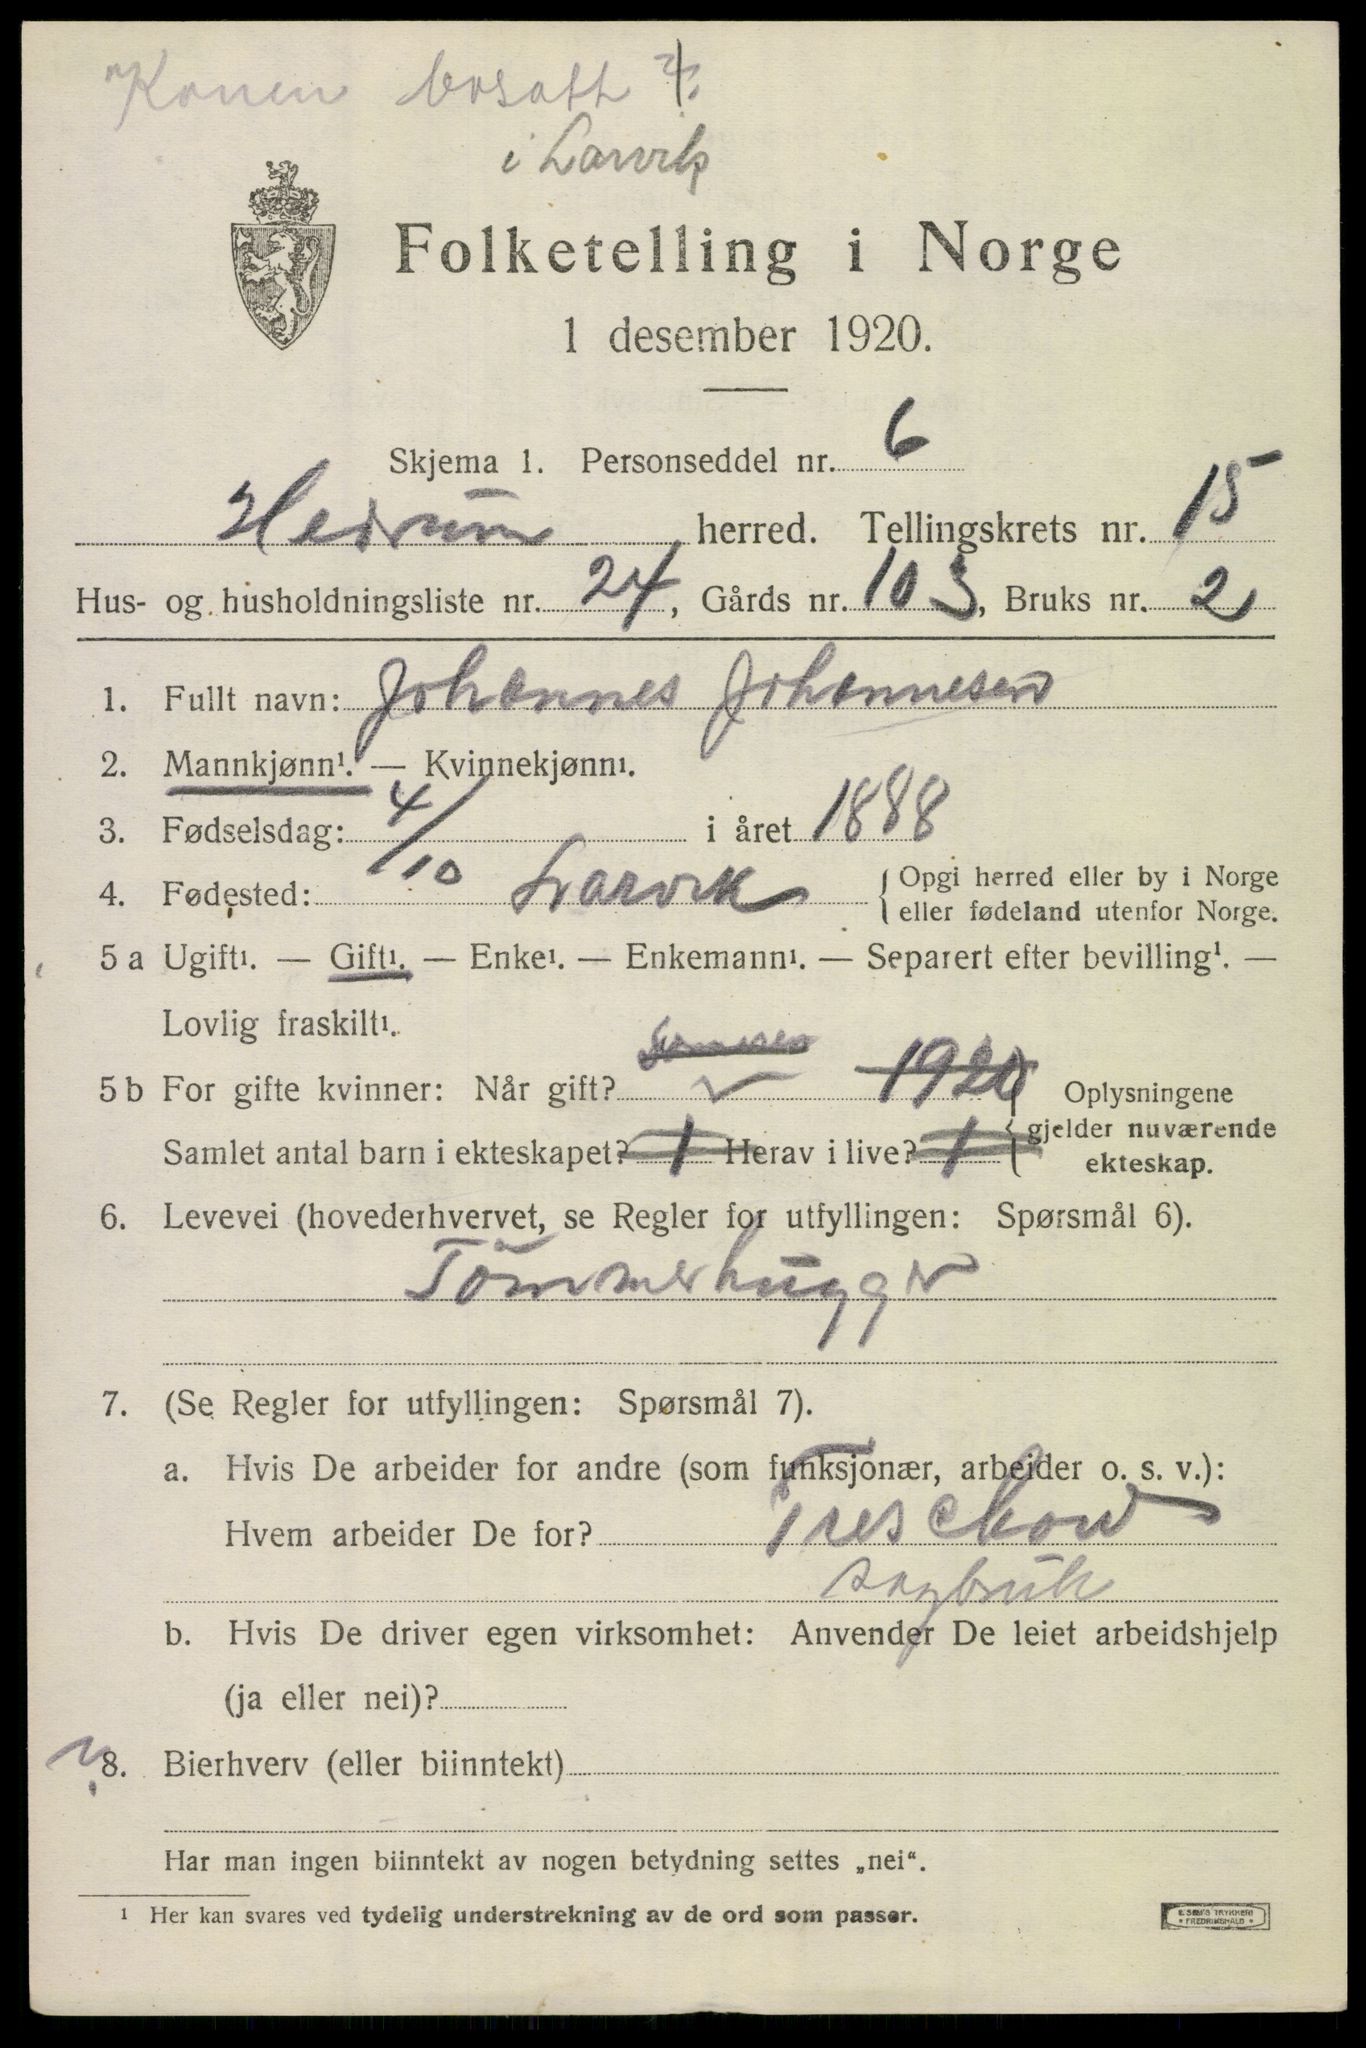 Konen bosatt
i Larvik
Folketelling i Norge
1 desember 1920.
Skjema 1. Personseddel nr. 6
Hedrum herred. Tellingskrets nr. 15
Hus- og husholdningsliste nr. 24, Gårds nr. 103, Bruks nr. 2
1. Fullt navn: Johannes Johannesen
2. Mannkjønn¹. — Kvinnekjønn¹.
3. Fødselsdag: 4/10 i året 1888
4. Fødested: Larvik { Opgi herred eller by i Norge
eller fødeland utenfor Norge.
5 a Ugift¹. — Gift¹. — Enke¹. — Enkemann¹. — Separert efter bevilling¹. —
Lovlig fraskilt¹.
5 b For gifte kvinner: Når gift? 1920 Oplysningene
Samlet antal barn i ekteskapet? 1 Herav i live? 1 gjelder nuværende
ekteskap.
6. Levevei (hovederhvervet, se Regler for utfyllingen: Spørsmål 6).
Tömmerhugger
7. (Se Regler for utfyllingen: Spørsmål 7).
a. Hvis De arbeider for andre (som funksjonær, arbeider o. s. v.):
Hvem arbeider De for? Treschow
sagbruk
b. Hvis De driver egen virksomhet: Anvender De leiet arbeidshjelp
(ja eller nei)?
8. Bierhverv (eller biinntekt)
Har man ingen biinntekt av nogen betydning settes „nei“.
¹ Her kan svares ved tydelig understrekning av de ord som passer.
E. SEM'S TRYKKERI
FREDRIKSHALD